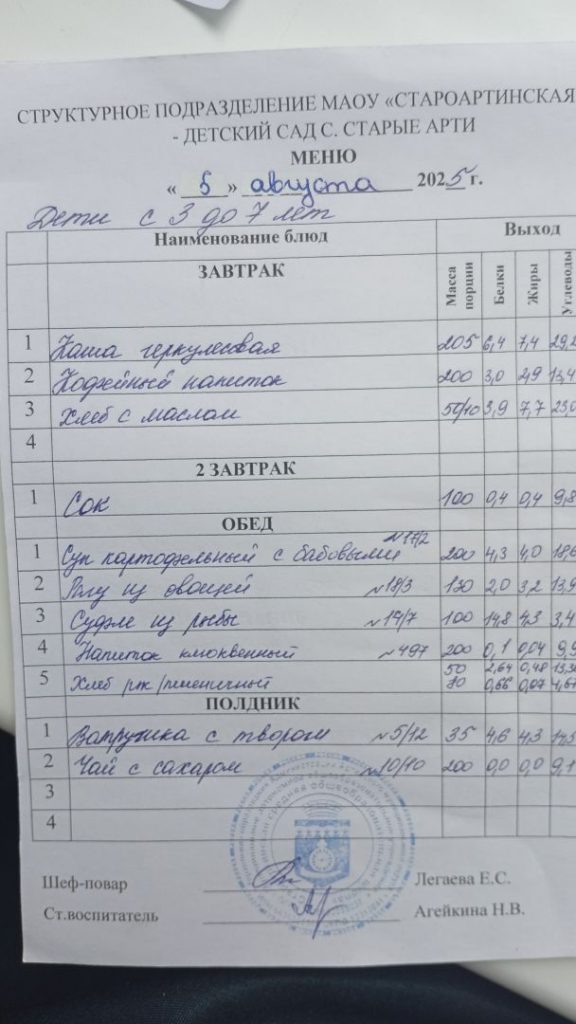 СТРУКТУРНОЕ ПОДРАЗДЕЛЕНИЕ МАОУ «СТАРОАРТИНСКАЯ
- ДЕТСКИЙ САД С. СТАРЫЕ АРТИ
МЕНЮ
« 5 » августа 2025 г.
Дети с 3 до 7 лет
Наименование блюд Выход
ЗАВТРАК Масса порции Белки Жиры Углеводы
1 Каша геркулесовая 205 6,4 7,4 29,2
2 Кофейный напиток 200 3,0 2,9 13,4
3 Хлеб с маслом 50/10 3,9 7,7 23,0
4
2 ЗАВТРАК
1 Сок 100 0,4 0,4 9,8
ОБЕД
1 Суп картофельный с бабовыми №17/2 200 4,3 4,0 18,6
2 Рагу из овощей №18/3 130 2,0 3,2 13,9
3 Суфле из рыбы №19/7 100 14,8 4,3 3,4
4 Напиток клюквенный №497 200 0,1 0,04 9,9
5 Хлеб рж/пшеничный 50 2,64 0,48
0,66 0,07 4,67
ПОЛДНИК
1 Ватрушка с творогом №5/12 35 4,6 4,3 14,5
2 Чай с сахаром №10/10 200 0,0 0,0 9,1
3
4
Шеф-повар Легаева Е.С.
Ст.воспитатель Агейкина Н.В.